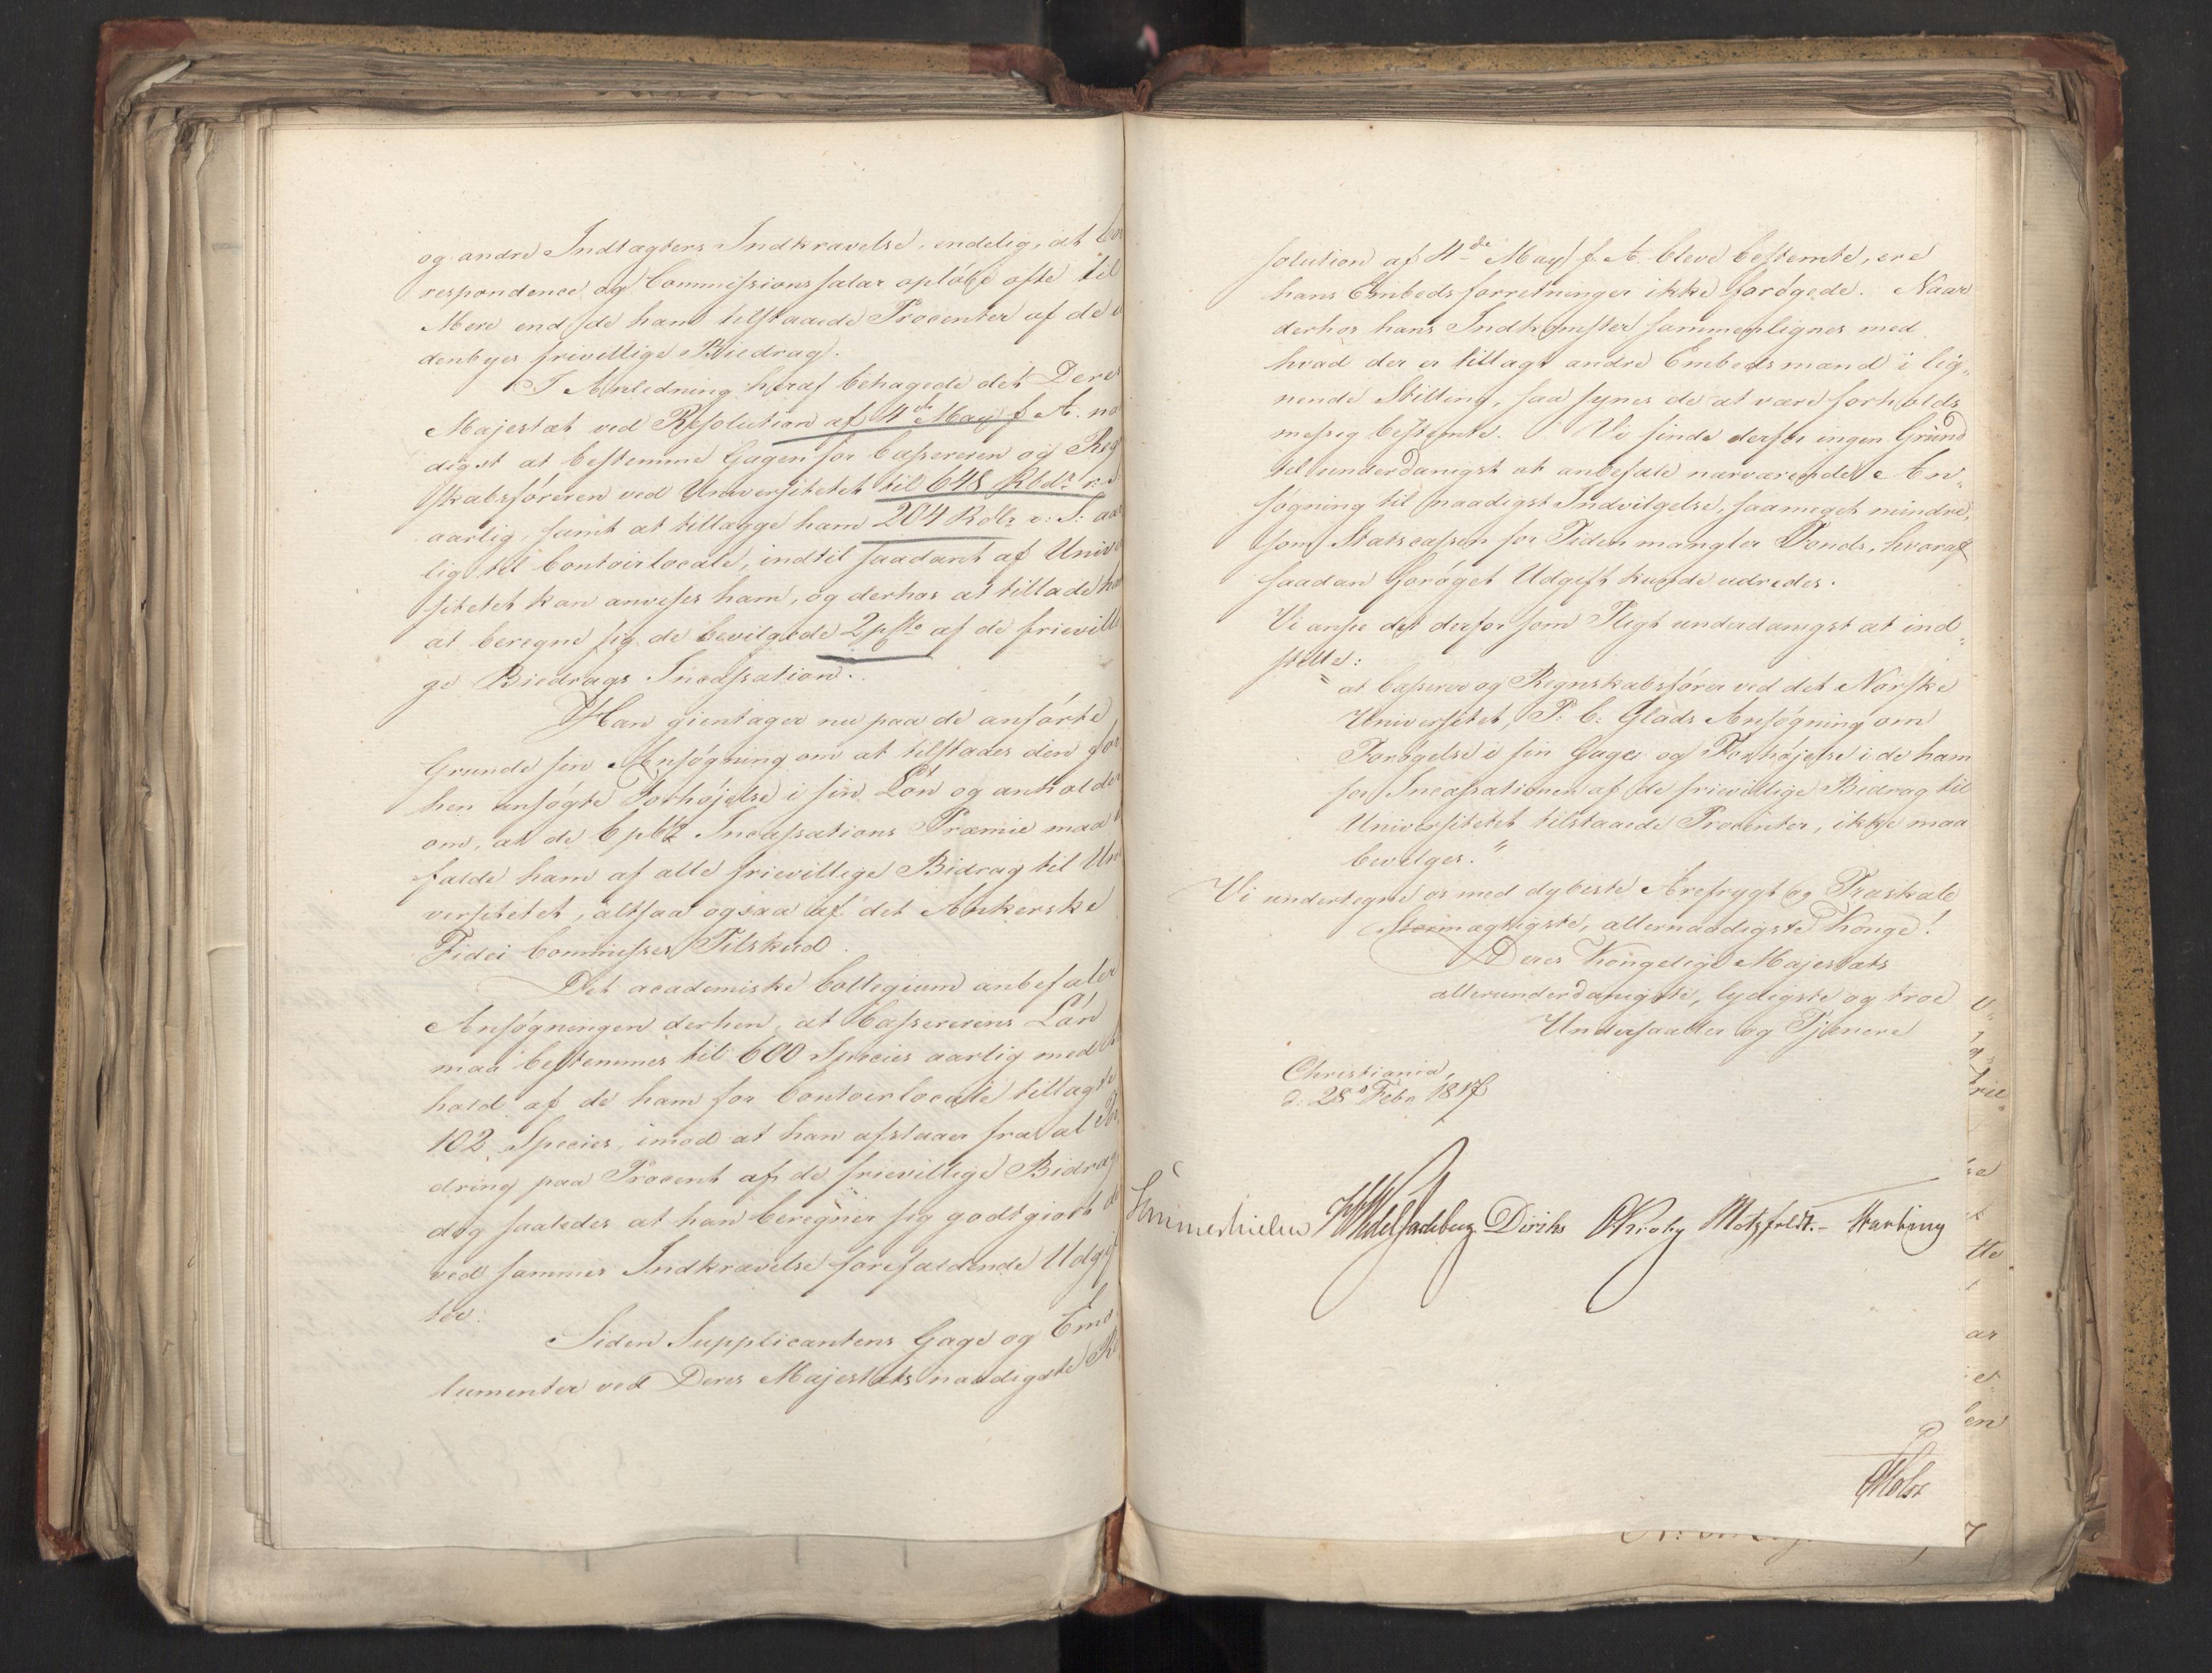 og andre Indtægters Indkrævelse, endelig, at Cor
respondence og Commissionssalær opløbe ofte til
Mere end de ham tilstaaede Procenter af de
denbyes frivillige Biedrag.
I Anledning heraf behagede det Deres
Majestæt ved Resolution af 4de May f. A. naa
digst at bestemme Gagen for Cassereren og Reg
skabsføreren ved Universitetet til 648 Rbdr
aarlig, samt at tillægge ham 204 Rdlr r: S: aar
lig til Contoirlocale, indtil saadant af Univer
sitetet kan anvises ham, og derhos at tillade ham
at beregne sig de bevilgede 2 pCto af de frievilli
ge Biedrags Incassation.
Han gientager nu paa de anførte
Grunde sin Ansøgning om at tilstaaes den for
hen ansøgte Forhøjelse i sin Løn og anholder
om, at de 6 pCto Incassations Præmie maa
falde ham af alle frievillige Bidrag til Uni
versitetet, altsaa ogsaa af det Ankerske
Fidei Commisses Tilskud.
Det academiske Collegium anbefaler
Ansøgningen derhen, at Cassererens Løn
maa bestemmes til 600 Species aarlig med
hold af de ham for Contoirlocale tillagte
102 Species, imod at han afstaaer fra al For
dring paa Procent af de frievillige Bidrag
dog saaledes at han beregner sig godtgiort de
ved sammes Indkrævelse forefaldende Udgif
ter.
Siden Supplicantens Gage og Emo
lumenter ved Deres Majestæts naadigste Re
solution af 4de May f. A. bleve bestemte, ere
hans Embedsforretninger ikke forøgede. Naar
derhos hans Indkomster sammenlignes med
hvad der er tillagt andre Embedsmænd i lig„
nende Stilling, saa synes de at være forholds
mæssig bestemte. Vi finde derfor ingen Grund
til underdanigst at anbefale nærværende An„
søgning til naadigst Indvilgelse, saameget mindre,
som Statscassen for Tiden mangler Fonds, hvoraf
saadan forøget Udgift kunde udredes.
Vi ansee det derfor som Pligt underdanigst at ind„
stille:
"at Casserer og Regnskabsfører ved det Norske
Universitet, P. C. Glads Ansøgning om
Forøgelse i sin Gage og Forhøjelse i de ham
for Incassationen af de frievillige Bidrag til
Universitetet tilstaaede Procenter, ikke maa
bevilges."
Vi undertegne os med dybeste Ærefrygt og Troskab
Stormægtigste, allernaadigste Konge!
Deres Kongelige Majestæts
allerunderdanigste, lydigste og troe
Undersaatter og Tjenere
Christiania,
d: 28d Febr 1817
Sommerhielm HWedelJarlsberg Diriks Krohg Motzfeldt.
Holst